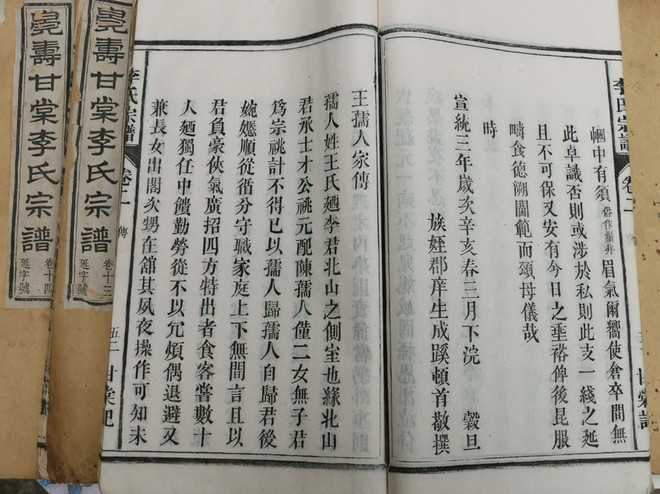 李氏宗譜 卷二 甘棠記
幗中有須俗作鬚非眉氣爾嚮使倉卒間無
此卓識否則或涉於私則此支一綫之延
且不可保又安有今日之垂裕俾後昆服
疇食德溯閫範而頌母儀哉
時
宣統三年歲次辛亥春三月下浣 穀旦
族姪郡庠生成蹊頓首敬撰
王孺人家傳
孺人姓王氏廼李君北山之側室也緣北山
君承士才公祧元配陳孺人僅二女無子君
爲宗祧計不得已以孺人歸孺人自歸君後
婉嫕順從循分守職家庭上下無閒言且以
君負豪俠氣廣招四方特出者食客嘗數十
人廼獨任中饋勤勞從不以冗煩偶退避又
兼長女出閣次甥在舘其夙夜操作可知未
李氏宗譜 卷二 傳 五二 甘棠記
壽甘棠李氏宗譜 卷十三 延字號
壽甘棠李氏宗譜 卷十四 延字號